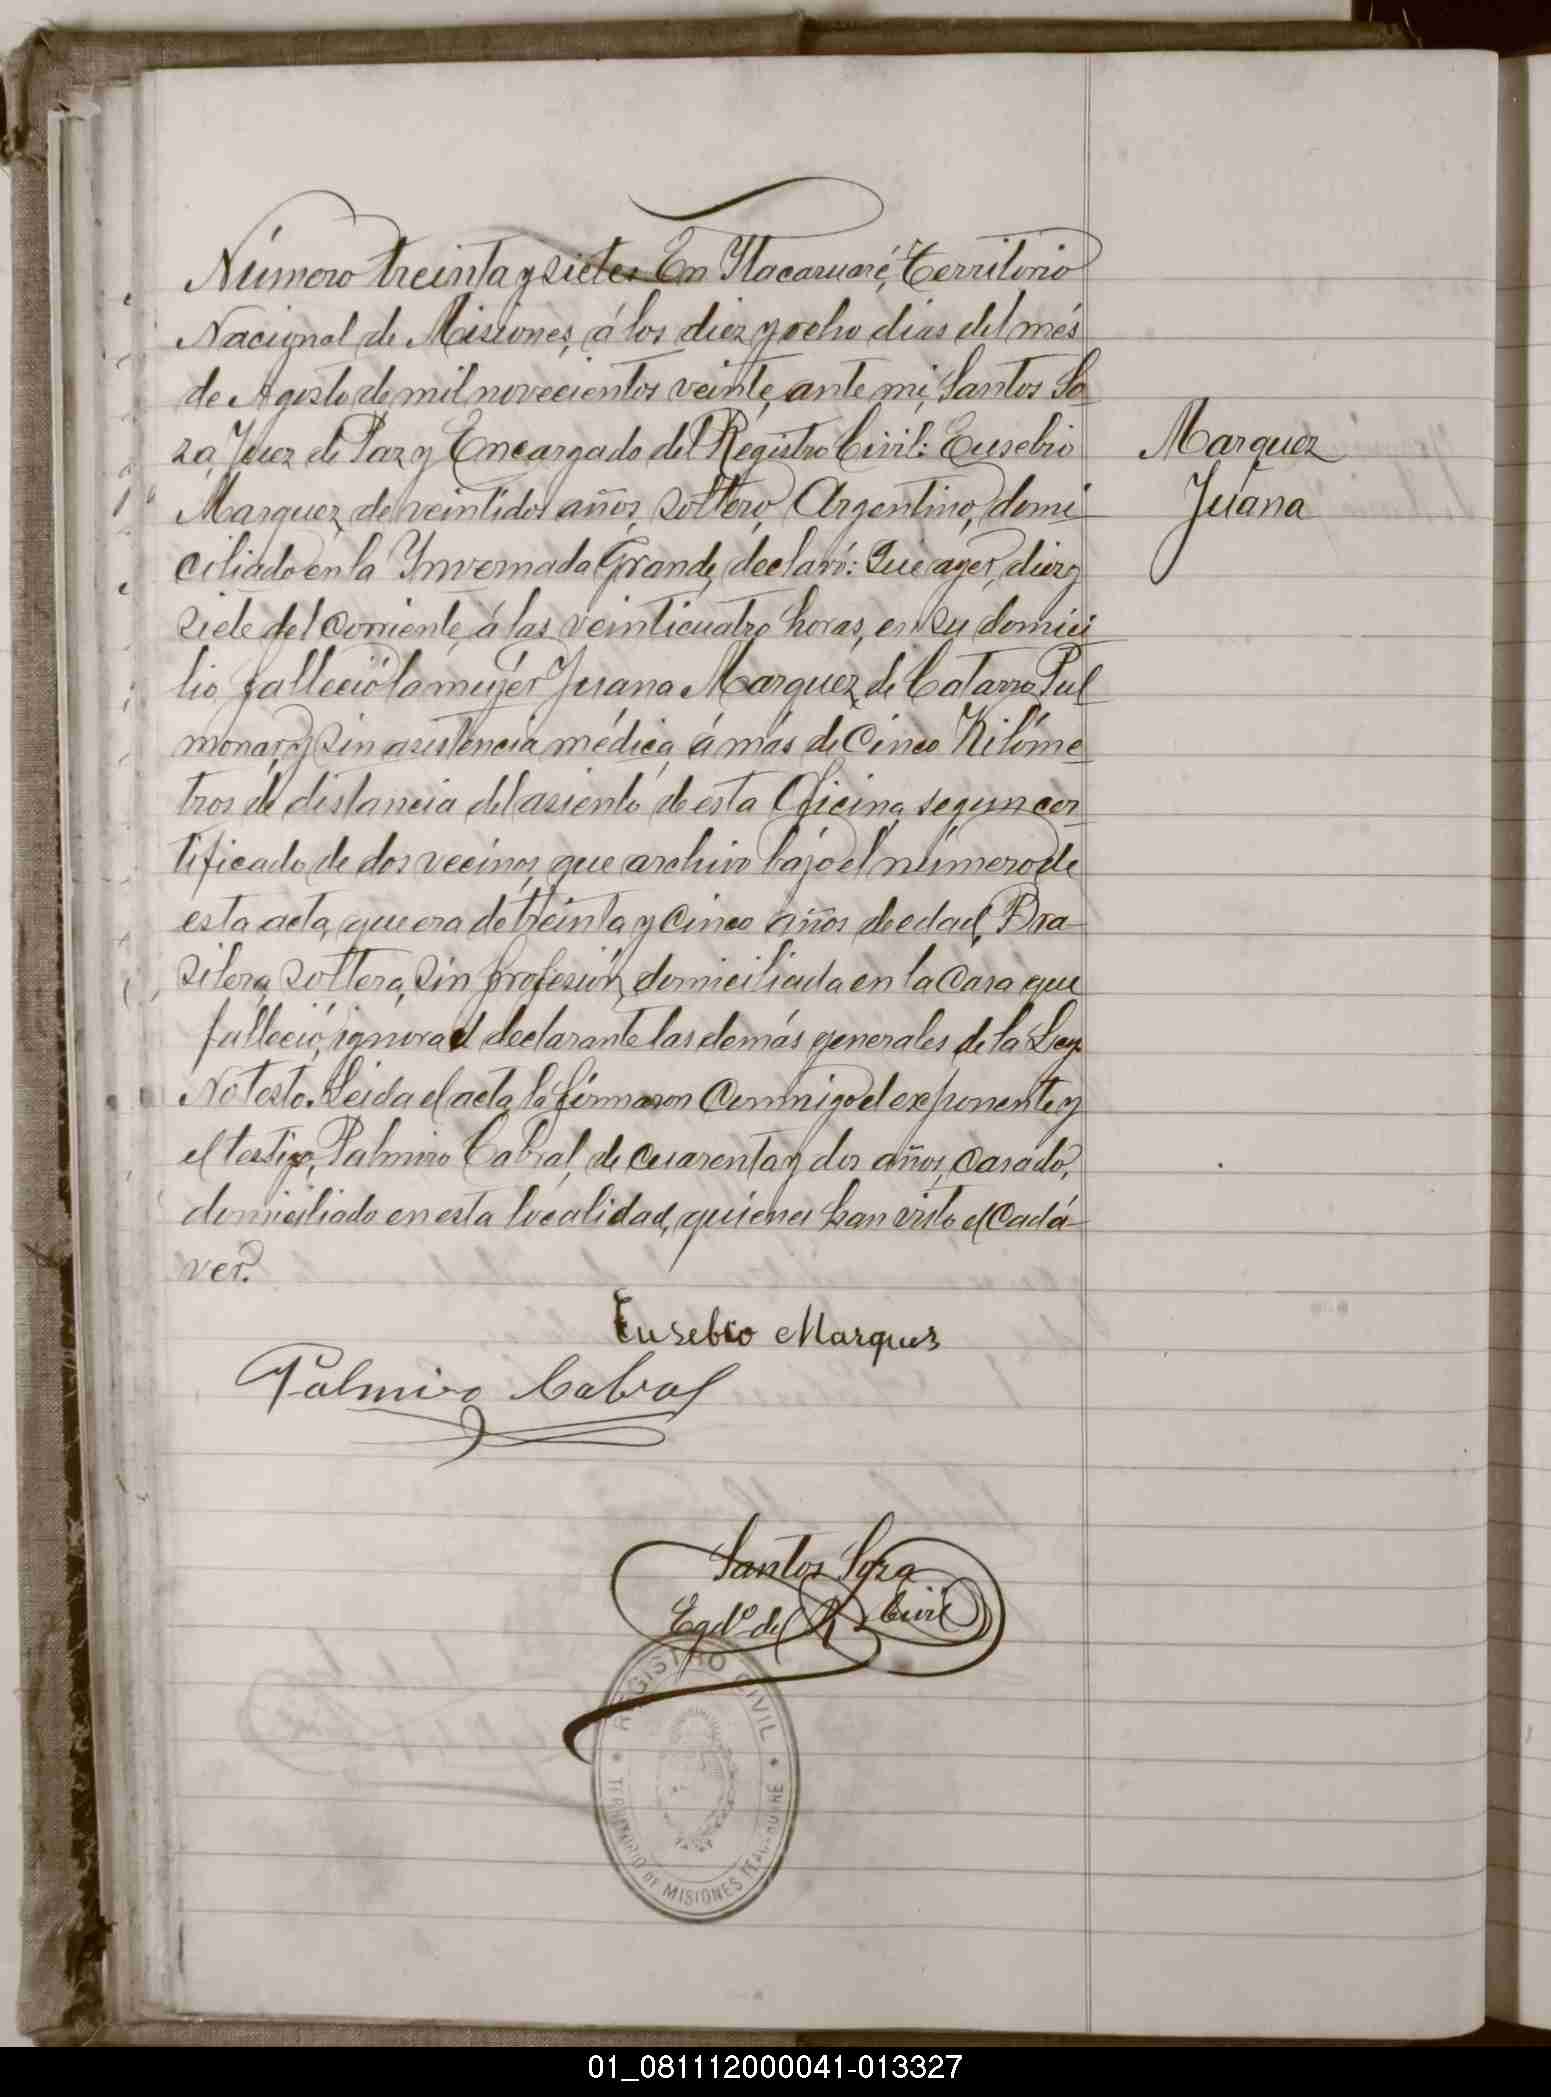 Número treinta y siete. En Ytacaruaré, Territorio
Nacional de Misiones, á los diez y ocho dias del més
de Agosto de mil novecientos veinte, ante mi, Santos So-
za, Juez de Paz y Encargado del Registro Civil: Eusebio
Marquez, de veintidos años, soltero, Argentino, domi-
ciliado en la Ynvernada Grande, declaró: Que ayer, diez y
siete del corriente, á las veinticuatro horas, en su domici-
lio, falleció la mujer Juana Marquez, de Catarro Pul
monar, y sin asistencia médica, á más de Cinco Kilóme-
tros de distancia del asiento de esta Oficina, segun cer-
tificado de dos vecinos, que archivo bajo el número de
esta acta, que era de treinta y cinco años de edad, Bra-
silera, soltera, sin profesión, domiciliada en la Casa que
falleció, ignora el declarante las demás generales de la Ley.
No testo. Leida el acta, la firmaron conmigo el exponente y
el testigo, Palmiro Cabral, de cuarenta y dos años, casado,
domiciliado en esta localidad, quienes han visto el Cadá-
ver.
Marquez
Juana
Eusebio Marques
Palmiro Cabral
Santos Soza
Egdo. del R. Civil
REGISTRO CIVIL
TERRITORIO DE MISIONES
01_081112000041-013327